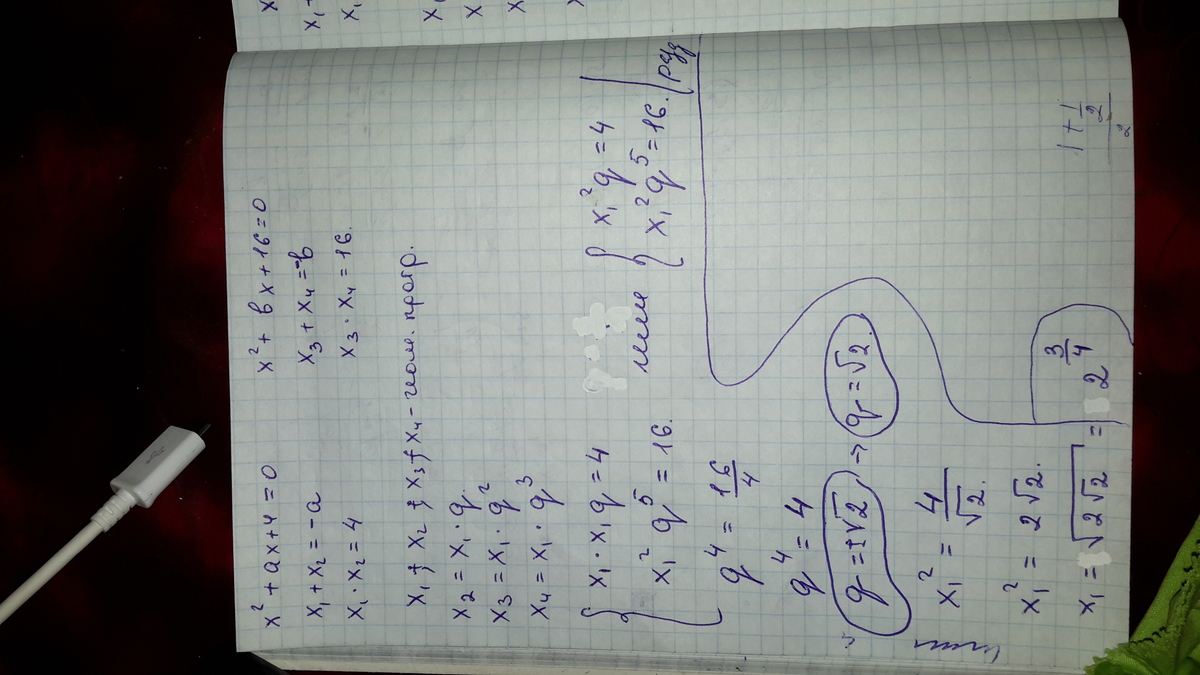 x² + ax + 4 = 0   x² + вx + 16 = 0
x₁ + x₂ = -a   x₃ + x₄ = -в
x₁ · x₂ = 4   x₃ · x₄ = 16.
x₁ ; x₂ ; x₃ ; x₄ - геом. прогр.
x₂ = x₁ · q.
x₃ = x₁ · q²
x₄ = x₁ · q³
{ x₁ · x₁ q = 4
x₁² q⁵ = 16.
или { x₁² q = 4
x₁² q⁵ = 16.
q⁴ = 16/4
q⁴ = 4
q = ±√2 → q = √2.
x₁² = 4/√2.
x₁² = 2√2.
x₁ = √(2√2) = 2^(3/4)
1 + 1/2
2